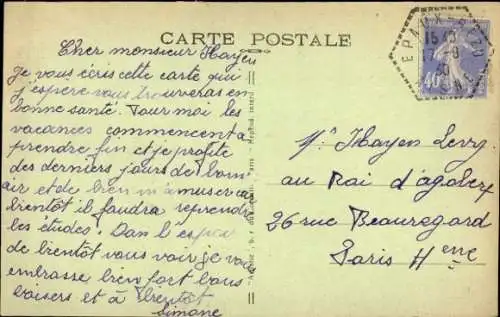 CARTE POSTALE
Cher monsieur Hayen
je vous écris cette carte qui
j'espère vous trouveras en
bonne santé. Pour moi les
vacances commencent à
prendre fin et je profite
des derniers jours de bon
air et de bien m'amuser car
bientôt il faudra reprendre
les études. Dans l'espoir
de bientôt vous voir je vous
embrasse bien fort bons
baisers et à bientôt
Simone
EPAUX-BEZU
15 45
17 - 9
AISNE
40
Mr Hayen Levy
au Roi d'agobert
26 rue Beauregard
Paris IIeme